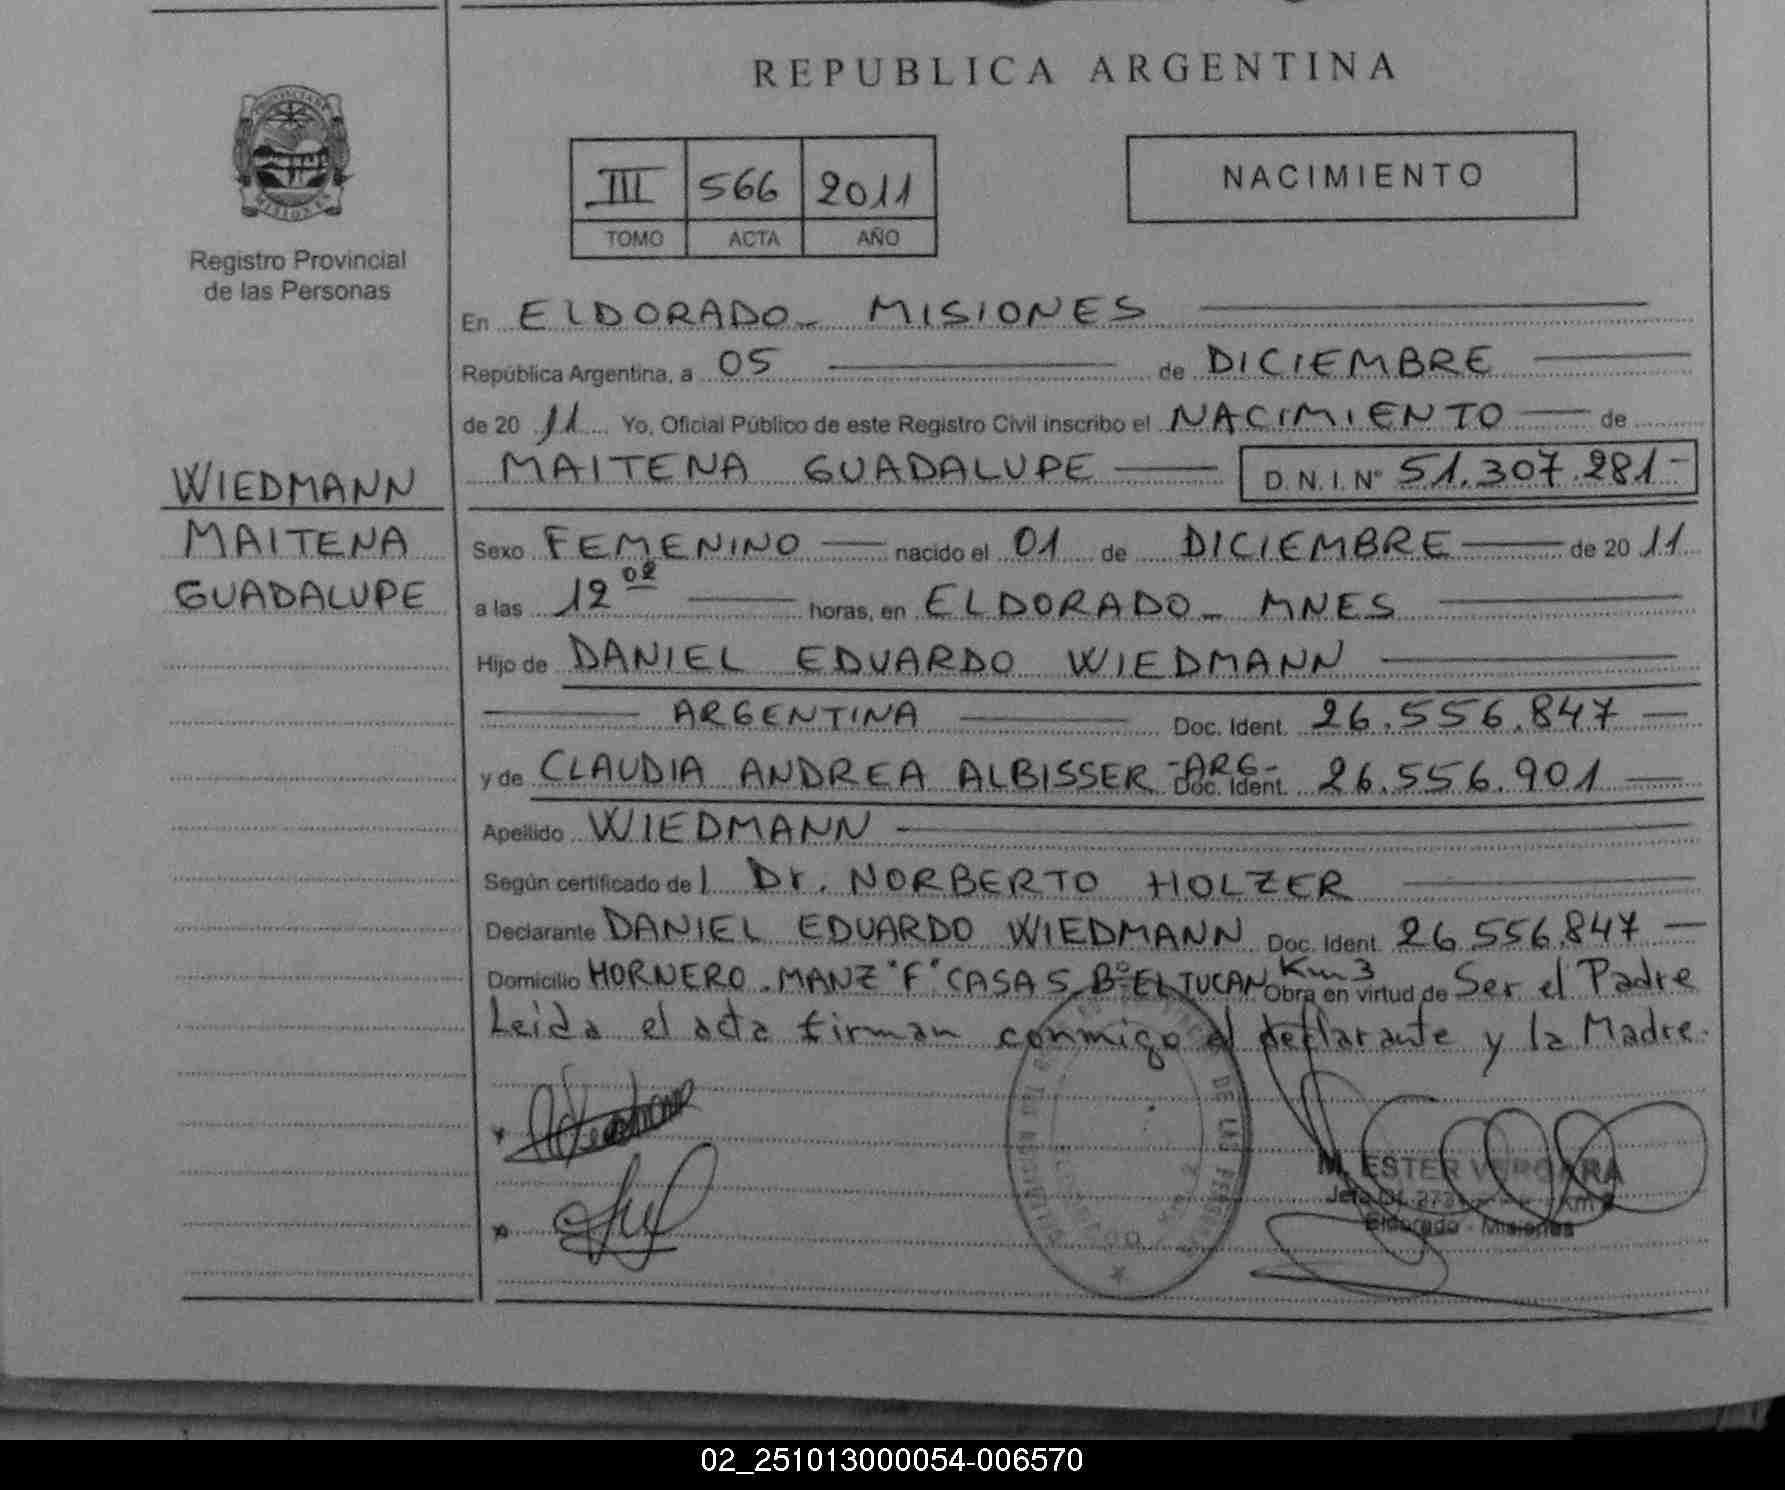 REPUBLICA ARGENTINA
PROVINCIA DE MISIONES
Registro Provincial
de las Personas
III 566 2011
TOMO ACTA AÑO
NACIMIENTO
En ELDORADO - MISIONES
República Argentina, a 05 de DICIEMBRE
de 20 11 Yo, Oficial Público de este Registro Civil inscribo el NACIMIENTO de
MAITENA GUADALUPE D.N.I. Nº 51.307.281-
WIEDMANN
MAITENA
GUADALUPE
Sexo FEMENINO nacido el 01 de DICIEMBRE de 20 11
a las 12 02 horas, en ELDORADO - MNES
Hijo de DANIEL EDUARDO WIEDMANN
ARGENTINA Doc. Ident. 26.556.847
y de CLAUDIA ANDREA ALBISSER -ARG- Doc. Ident. 26.556.901
Apellido WIEDMANN
Según certificado de l Dr. NORBERTO HOLZER
Declarante DANIEL EDUARDO WIEDMANN Doc. Ident. 26.556.847
Domicilio HORNERO. MANZ "F" CASA 5 Bº EL TUCAN Km 3 Obra en virtud de Ser el Padre
Leida el acta firman conmigo el declarante y la Madre.
M. ESTER VERGARA
Eldorado - Misiones
02_251013000054-006570